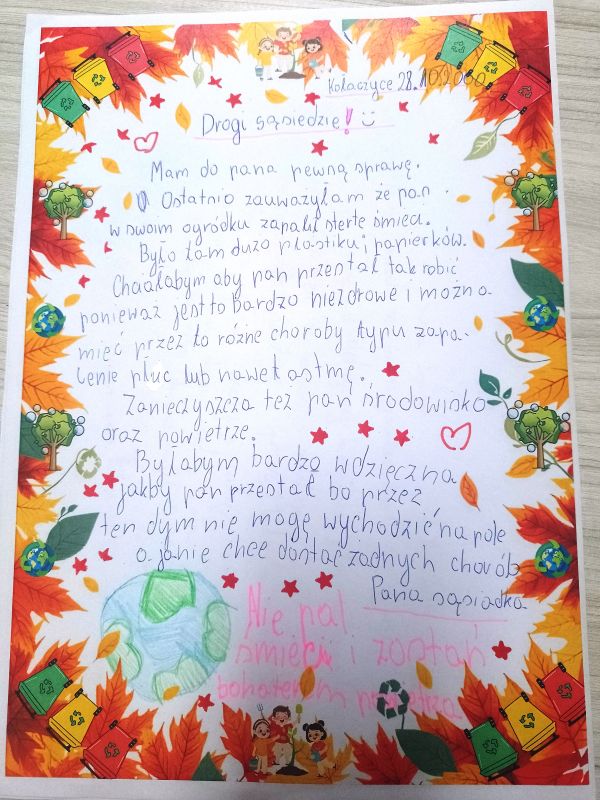 Kołaczyce 28.10.2000
Drogi sąsiedzie!
Mam do pana pewną sprawę.
Ostatnio zauważyłam że pan
w swoim ogródku zapalił stertę śmieci.
Było tam dużo plastiku i papierków.
Chciałabym aby pan przestał tak robić
ponieważ jest to Bardzo niezdrowe i można
mieć przez to różne choroby typu zapa-
lenie płuc lub nawet astmę.
Zanieczyszcza też pan środowisko
oraz powietrze.
Byłabym bardzo wdzięczna
jakby pan przestał bo przez
ten dym nie mogę wychodzić na pole
a ja nie chce dostać żadnych chorób
Pana sąsiadka
Nie pal
śmieci i zostań
bohaterem powietrza